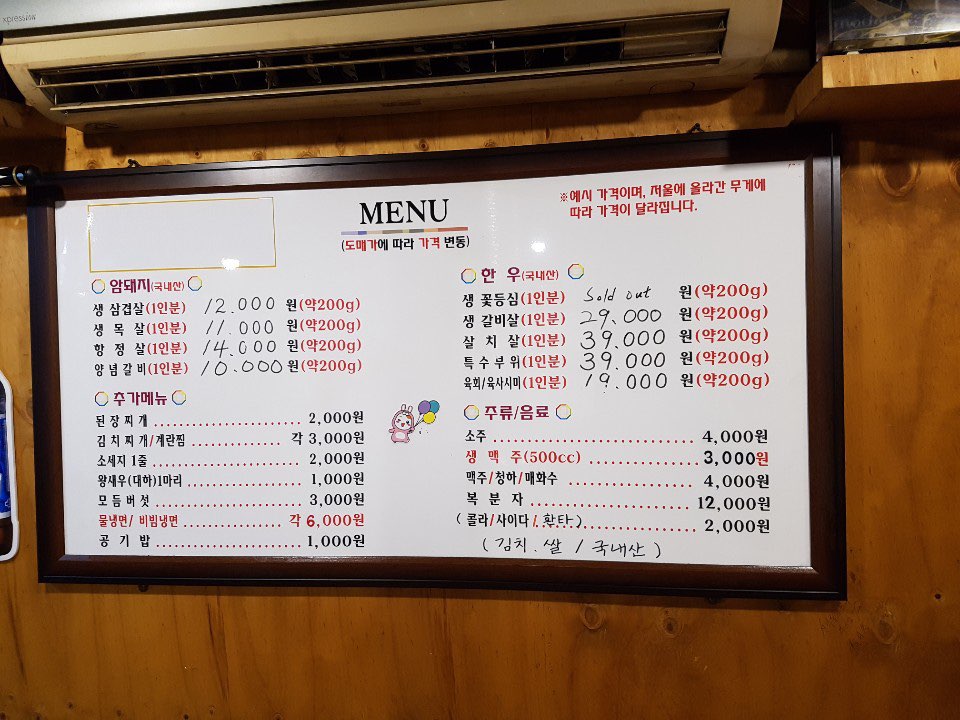 xpression
MENU
(도매가에 따라 가격 변동)
※예시 가격이며, 저울에 올라간 무게에
따라 가격이 달라집니다.
암돼지(국내산)
생 삼겹살(1인분) 12.000 원(약200g)
생 목 살(1인분) 11.000 원(약200g)
항 정 살(1인분) 14.000 원(약200g)
양념 갈비(1인분) 10.000원(약200g)
추가메뉴
된 장 찌 개 ........................ 2,000원
김 치 찌 개/계란찜 .................. 각 3,000원
소세지 1줄 ........................ 2,000원
왕새우(대하)1마리 .................. 1,000원
모 듬 버 섯 ........................ 3,000원
물냉면/ 비빔냉면 .................. 각 6,000원
공 기 밥 ........................ 1,000원
한 우(국내산)
생 꽃등심(1인분) Sold out 원(약200g)
생 갈비살(1인분) 29.000 원(약200g)
살 치 살(1인분) 39.000 원(약200g)
특 수 부 위(1인분) 39.000 원(약200g)
육회/육사시미(1인분) 19.000 원(약200g)
주류/음료
소주 .............................. 4,000원
생 맥 주(500cc) .................. 3,000원
맥주/청하/매화수 .................. 4,000원
복 분 자 ........................ 12,000원
(콜라/사이다/.환타).................. 2,000원
(김치.쌀 / 국내산)